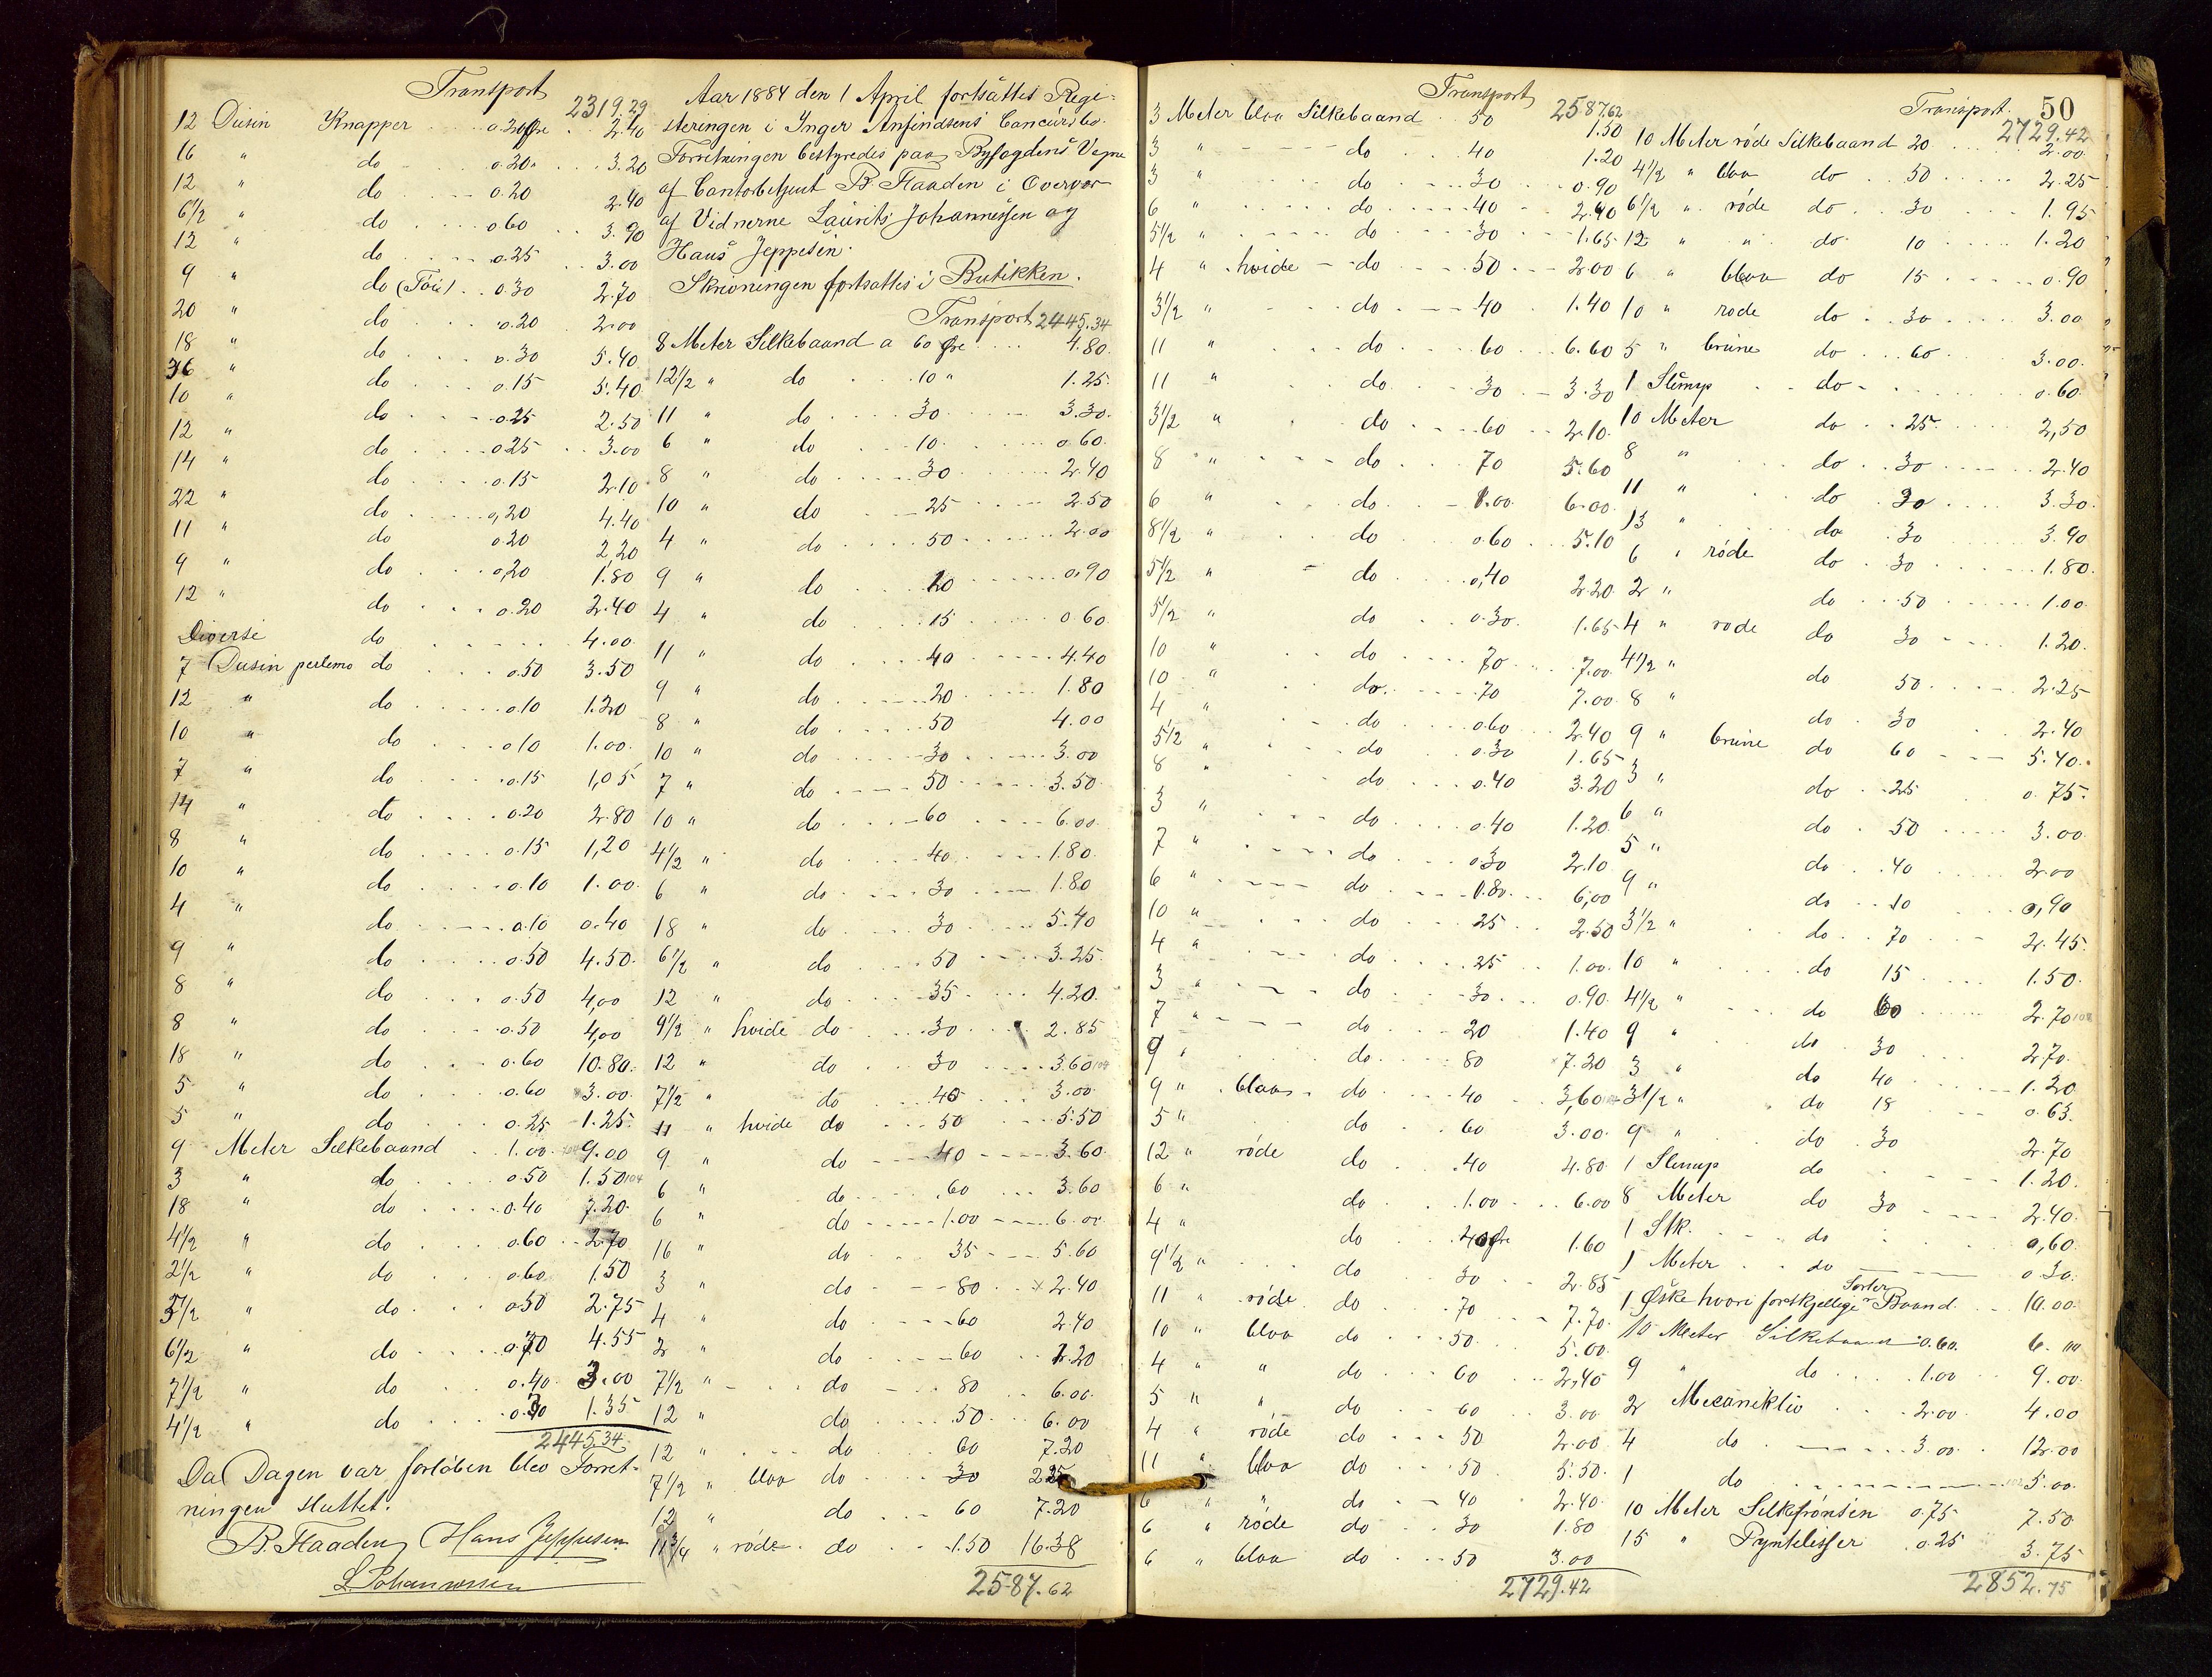 Transport 2319.29
12 Dusin Knapper 0.20 Øre 2.40
16 " do 0.20 " 3.20
12 " do 0.20 2.40
6 1/2 " do 0.60 3.90
12 " do 0.25 3.00
9 " do (Töie) 0.30 2.70
20 " do 0.20 2.00
18 " do 0.30 5.40
36 " do 0.15 5.40
10 " do 0.25 2.50
12 " do 0.25 3.00
14 " do 0.15 2.10
22 " do 0,20 4.40
11 " do 0.20 2,20
9 " do 0,20 1.80
12 " do 0.20 2.40
Diverse do 4.00
7 Dusin perlemo do 0.50 3.50
12 " do 0.10 1.20
10 " do 0.10 1.00
7 " do 0.15 1,05
14 " do 0.20 2.80
8 " do 0.15 1,20
10 " do 0.10 1.00
4 " do 0.10 0.40
9 " do 0.50 4.50
8 " do 0.50 4,00
8 " do 0.50 4,00
18 " do 0.60 10.80
5 " do 0.60 3.00
5 " do 0.25 1.25
9 Meter Silkebaand 1.00 9.00
3 " do 0.50 1.50
18 " do 0.40 7.20
4 1/2 " do 0.60 2.70
2 1/2 " do 0.60 1.50
5 1/2 " do 0.50 2.75
6 1/2 " do 0.70 4.55
7 1/2 " do 0.40 3.00
4 1/2 " do 0.30 1.35
2445.34
Da Dagen var forløben blev Forret-
ningen sluttet.
B. Flaaden Hans Jeppesen
L. Johannessen
Aar 1884 den 1 April fortsattes Regi-
steringen i Inger Anfindsens Concursbo.
Forretningen bestyredes paa Byfogdens Vegne
af Contorbetjent B. Flaaden i Overvær
af Vidnerne Laurits Johannessen og
Hans Jeppesen.
Skrivningen fortsattes i Butikken.
Transport 2445.34
8 Meter Silkebaand a 60 Øre 4.80
12 1/2 " do 10 " 1.25
11 " do 30 3.30
6 " do 10 0.60
8 " do 30 2.40
10 " do 25 2.50
4 " do 50 2.00
9 " do 10 0.90
4 " do 15 0.60
11 " do 40 4.40
9 " do 20 1.80
8 " do 50 4.00
10 " do 30 3.00
7 " do 50 3.50
10 " do 60 6.00
4 1/2 " do 40 1.80
6 " do 30 1.80
18 " do 30 5.40
6 1/2 " do 50 3.25
12 " do 35 4.20
9 1/2 " hvide do 30 2.85
12 " do 30 3.60
7 1/2 " do 40 3.00
11 " hvide do 50 5.50
9 " do 40 3.60
6 " do 60 3.60
6 " do 1.00 6.00
16 " do 35 5.60
3 " do 80 2.40
4 " do 60 2.40
2 " do 60 1.20
7 1/2 " do 80 6.00
12 " do 50 6.00
12 " do 60 7.20
7 1/2 " blaa do 30 2.25
12 " do 60 7.20
11 3/4 " röde do 1.50 16.38
2587.62
Transport 2587.62
3 Meter blaa Silkebaand 50 1.50
3 " do 40 1.20
3 " do 30 0.90
6 " do 40 2.40
5 1/2 " do 30 1.65
4 " hvide do 50 2.00
3 1/2 " do 40 1.40
11 " do 60 6.60
11 " do 30 3.30
3 1/2 " do 60 2.10
8 " do 70 5.60
6 " do 1.00 6.00
8 1/2 " do 0.60 5.10
5 1/2 " do 0,40 2.20
5 1/2 " do 0.30 1.65
10 " do 70 7.00
10 " do 70 7.00
4 " do 0.60 2.40
5 1/2 " do 0.30 1.65
8 " do 0.40 3.20
3 " do 0.40 1.20
7 " do 0.30 2.10
6 " do 1.00 6,00
10 " do 25 2.50
4 " do 25 1.00
3 " do 30 0.90
7 " do 20 1.40
9 " do 80 7.20
9 " blaa do 40 3,60
5 " do 60 3.00
12 " röde do 40 4.80
6 " do 1.00 6.00
4 " do 40 Øre 1.60
9 1/2 " do 30 2.85
11 " röde do 70 7.70
10 " blaa do 50 5.00
4 " " do 60 2,40
5 " " do 60 3.00
4 " röde do 50 2.00
11 " blaa do 50 5.50
6 " " do 40 2.40
6 " röde do 30 1.80
6 " blaa do 50 3.00
2729.42
50
Transport 2729.42
10 Meter röde Silkebaand 20 2.00
4 1/2 " blaa do 50 2.25
6 1/2 " röde do 30 1.95
12 " " do 10 1.20
6 " blaa do 15 0.90
10 " röde do 30 3.00
5 " brune do 60 3.00
1 Stump do 0.60
10 Meter do 25 2,50
8 " do 30 2.40
11 " do 30 3.30
13 " do 30 3.90
6 " röde do 30 1.80
2 " do 50 1.00
4 " röde do 30 1.20
4 1/2 " do 50 2.25
8 " do 30 2.40
9 " brune do 60 5.40
3 " do 25 0.75
6 " do 50 3.00
5 " do 40 2.00
9 " do 10 0,90
3 1/2 " do 70 2.45
10 " do 15 1.50
4 1/2 " do 60 2.70
9 " do 30 2.70
3 " do 40 1.20
3 1/2 " do 18 0.63
9 " do 30 2.70
1 Stump do 1.20
8 Meter do 30 2.40
1 Stk. do 0,60
1 Meter do 0.30
1 Øske hvori forskjellige Sorter Baand 10.00
10 Meter Silkebaand 0.60 6.00
9 " do 1.00 9.00
2 Mecaniktiv 2.00 4.00
4 do 3.00 12.00
1 do 5.00
10 Meter Silkefrønsen 0.75 7.50
15 " Pyntelisser 0.25 3.75
2852.75